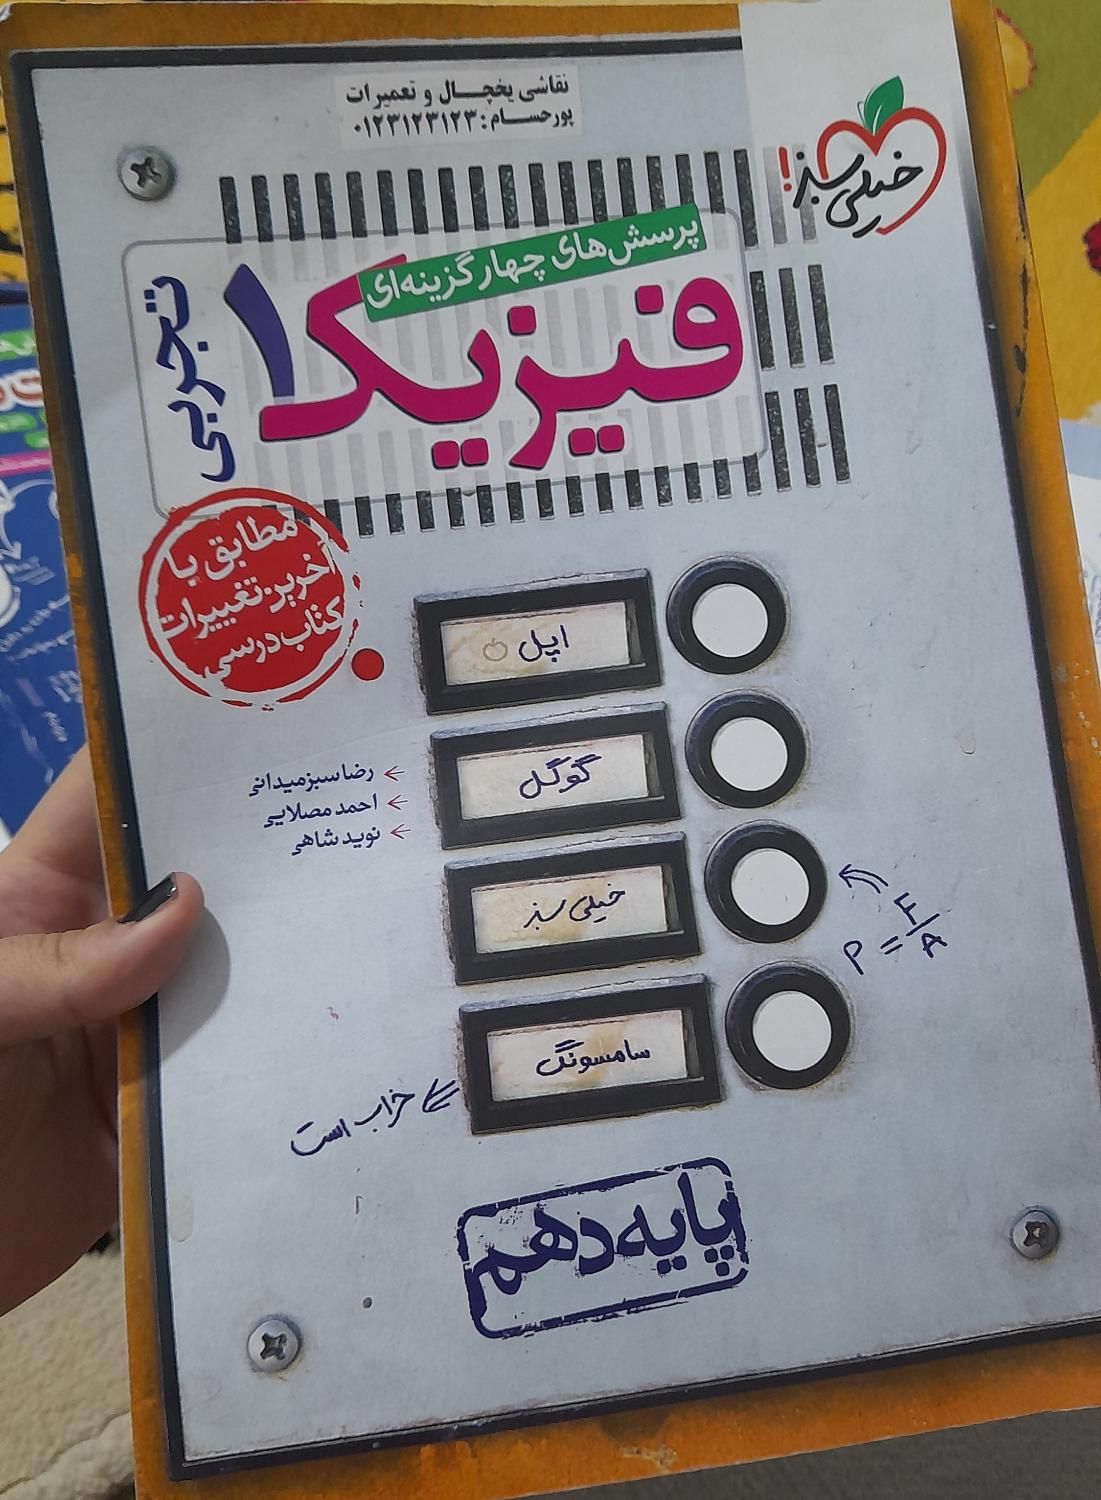 نقاشی یخچال و تعمیرات
پورحسام: ۰۱۲۳۱۲۳۱۲۳
خیلی سبز!
پرسش‌های چهارگزینه‌ای
فیزیک ۱
تجربی
مطابق با
آخرین تغییرات
کتاب درسی
اپل
گوگل
رضا سبزمیدانی
احمد مصلایی
نوید شاهی
خیلی سبز
P = F/A
سامسونگ
خراب است
پایه دهم